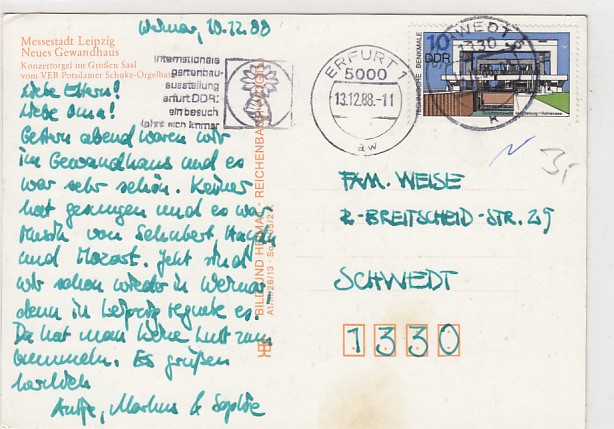 Weimar, 10.12.88
Messestadt Leipzig
Neues Gewandhaus
Konzertorgel im Großen Saal
vom VEB Potsdamer Schuke-Orgelbau
Liebe Eltern!
Liebe Oma!
Gestern abend waren wir
im Gewandhaus und es
war sehr schön. Keiner
hat gesungen und es war
Musik von Schubert, Haydn
und Mozart. Jetzt sind
wir schon wieder in Weimar,
denn in Leipzig regnete es.
Da hat man keine Lust zum
bummeln. Es grüßen
herzlich
Antje, Markus & Sophie
internationale
gartenbau-
ausstellung
erfurt DDR:
ein besuch
lohnt sich immer
ERFURT 1
5000
13.12.88.-11
aw
SCHWEDT
1330
10
DDR
DENKMALE
BILD UND HEIMAT · REICHENBACH
FAM. WEISE
R.-BREITSCHEID-STR. 29
SCHWEDT
1330